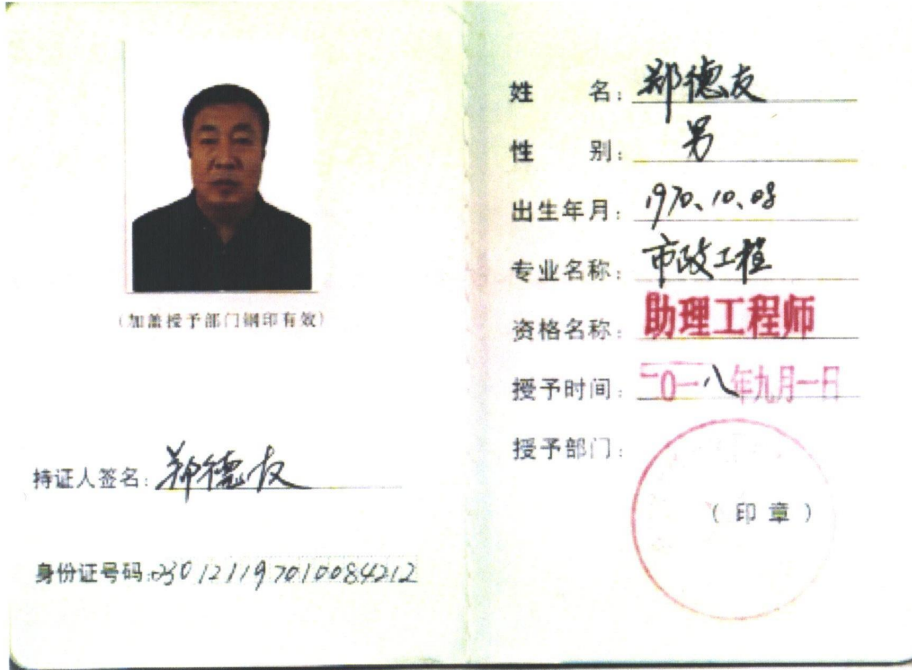 (加盖授予部门钢印有效)
持证人签名：郑德友
身份证号码：230121197010084212
姓名：郑德友
性别：男
出生年月：1970、10、08
专业名称：市政工程
资格名称：助理工程师
授予时间：二0一八年九月一日
授予部门：
(印章)